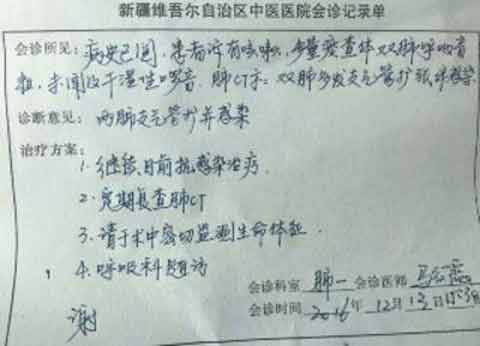 新疆维吾尔自治区中医医院会诊记录单
会诊所见:病史已阅,患者诉有咳嗽,多量痰查体双肺呼吸音
粗,未闻及干湿性啰音.肺CT示:双肺多发支气管扩张伴感染
诊断意见:两肺支气管扩并感染
治疗方案:
1.继续目前抗感染治疗.
2.定期复查肺CT
3.请于术中密切监测生命体征.
4.呼吸科随访
会诊科室 肺一 会诊医师
谢 会诊时间 2016年12月13日